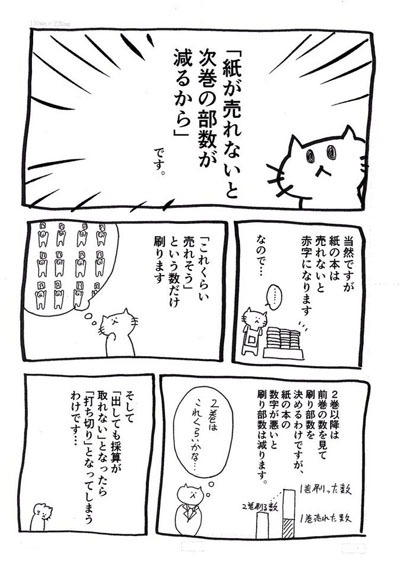 「紙が売れないと
次巻の部数が
減るから」
です。
当然ですが
紙の本は
売れないと
赤字になります
なので…
「これくらい
売れそう」
という数だけ
刷ります
2巻以降は
前巻の数を見て
刷り部数を
決めるわけですが、
紙の本の
数字が悪いと
刷り部数は減ります。
2巻は
これくらいかな…
1巻刷った数
1巻売れた数
2巻刷る数
そして
「出しても採算が
取れない」となったら
「打ち切り」となってしまう
わけです…